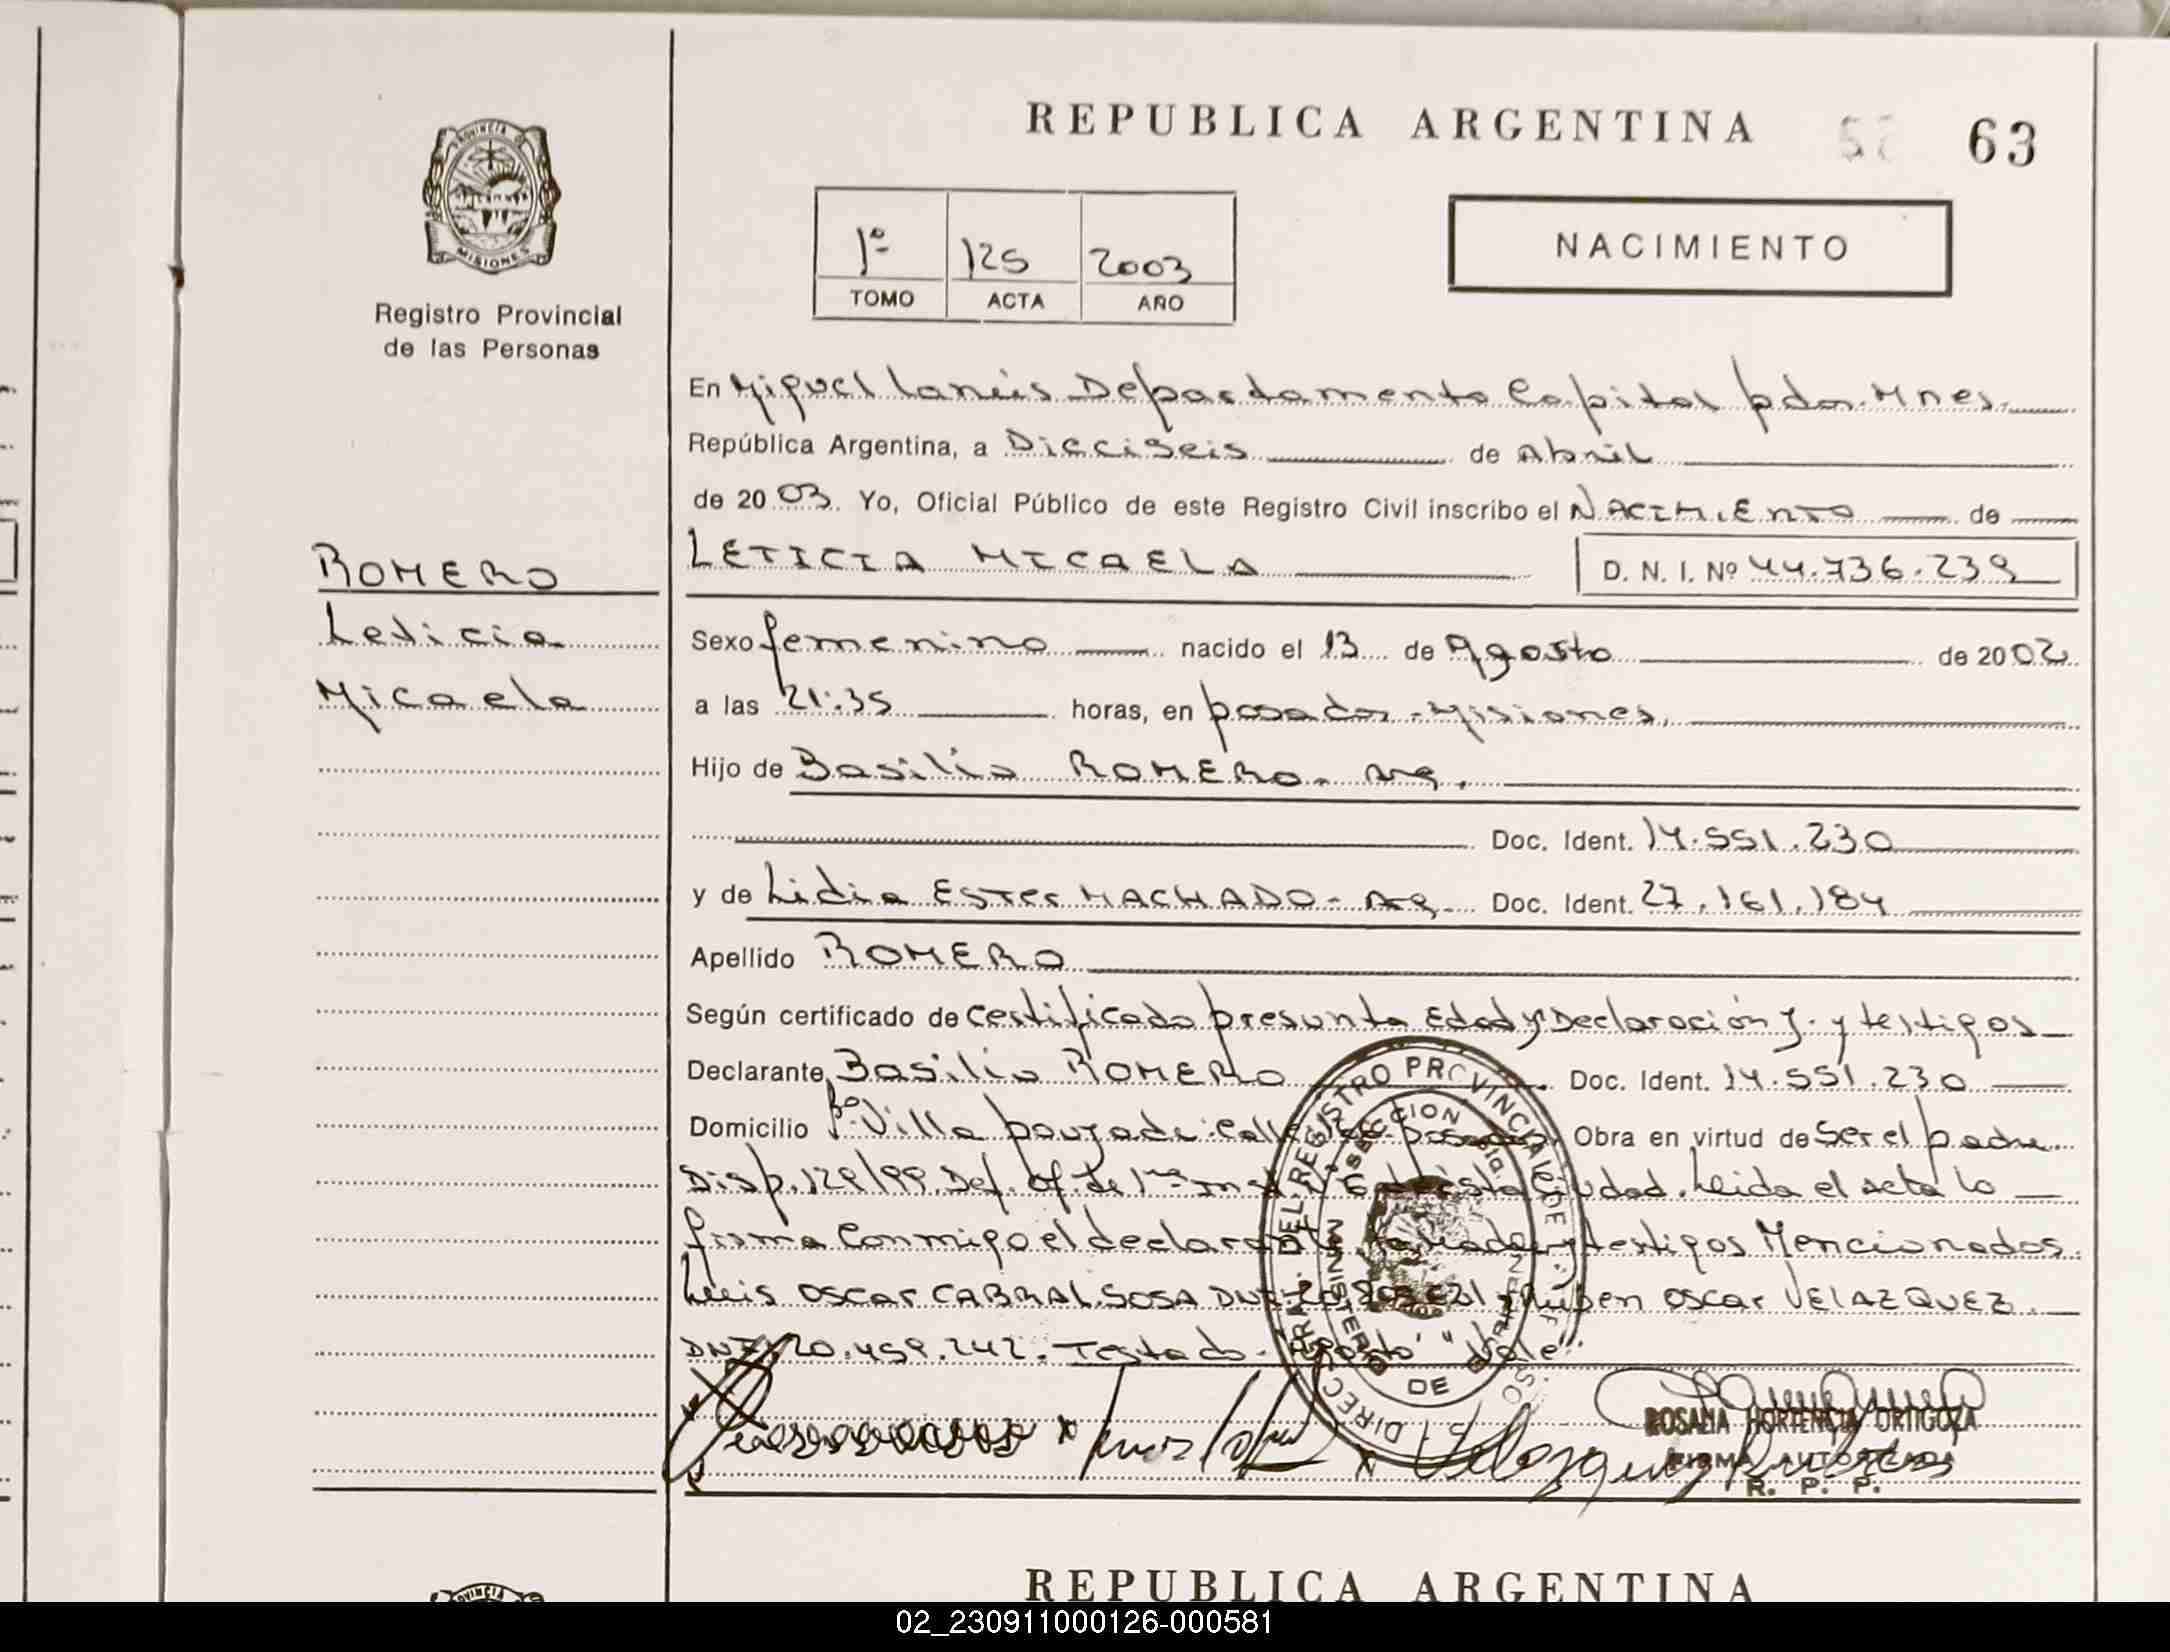 REPUBLICA ARGENTINA
57 63
PROVINCIA DE
MISIONES
Registro Provincial
de las Personas
1º 125 2003
TOMO ACTA AÑO
NACIMIENTO
En Miguel Lanús Departamento Capital pdas. Mnes.
República Argentina, a Dieciseis de Abril
de 2003. Yo, Oficial Público de este Registro Civil inscribo el NACIMIENTO de
ROMERO
Leticia
Micaela
LETICIA MICAELA D. N. I. Nº 44.736.239
Sexo femenino nacido el 13 de Agosto de 2002
a las 21:35 horas, en posadas - Misiones.
Hijo de Basilio ROMERO - Arg.
Doc. Ident. 14.551.230
y de Lidia Ester MACHADO - Arg. Doc. Ident. 27.161.184
Apellido ROMERO
Según certificado de certificado presunta Edad y Declaración J. y testigos
Declarante Basilio ROMERO Doc. Ident. 14.551.230
Domicilio Bº Villa Calle Obra en virtud de ser el padre
Disp. 129/99. Def. Of. de 1ra Inst. Nº 6 de esta Ciudad. Leida el acta lo
firma conmigo el declarante y testigos Mencionados.
Luis Oscar CABRAL SOSA DNI y Ruben Oscar VELAZQUEZ.
DNI. 20.459.242. Testado. "Agosto" "Vale".
DIREC. GRAL. DEL REGISTRO PROVINCIAL DE
SECCION
MINISTERIO DE
ROSANA HORTENCIA ORTIGOZA
FIRMA AUTORIZADA
R. P. P.
PROVINCIA
REPUBLICA ARGENTINA
02_230911000126-000581